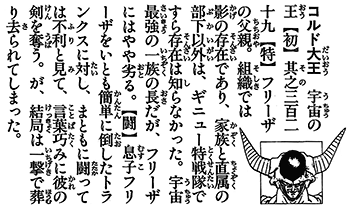 コルド大王　宇宙の
王【初】其之三百二
十九【特】フリーザ
の父親。組織では
影の存在であり、家族と直属の
部下以外は、ギニュー特戦隊で
すら存在は知らなかった。宇宙
最強の一族の長だが、フリーザ
にはやや劣る。【闘】息子フリ
ーザをいとも簡単に倒したトラ
ンクスに対し、まともに闘って
は不利と見て、言葉巧みに彼の
剣を奪う。が、結局は一撃で葬
り去られてしまった。